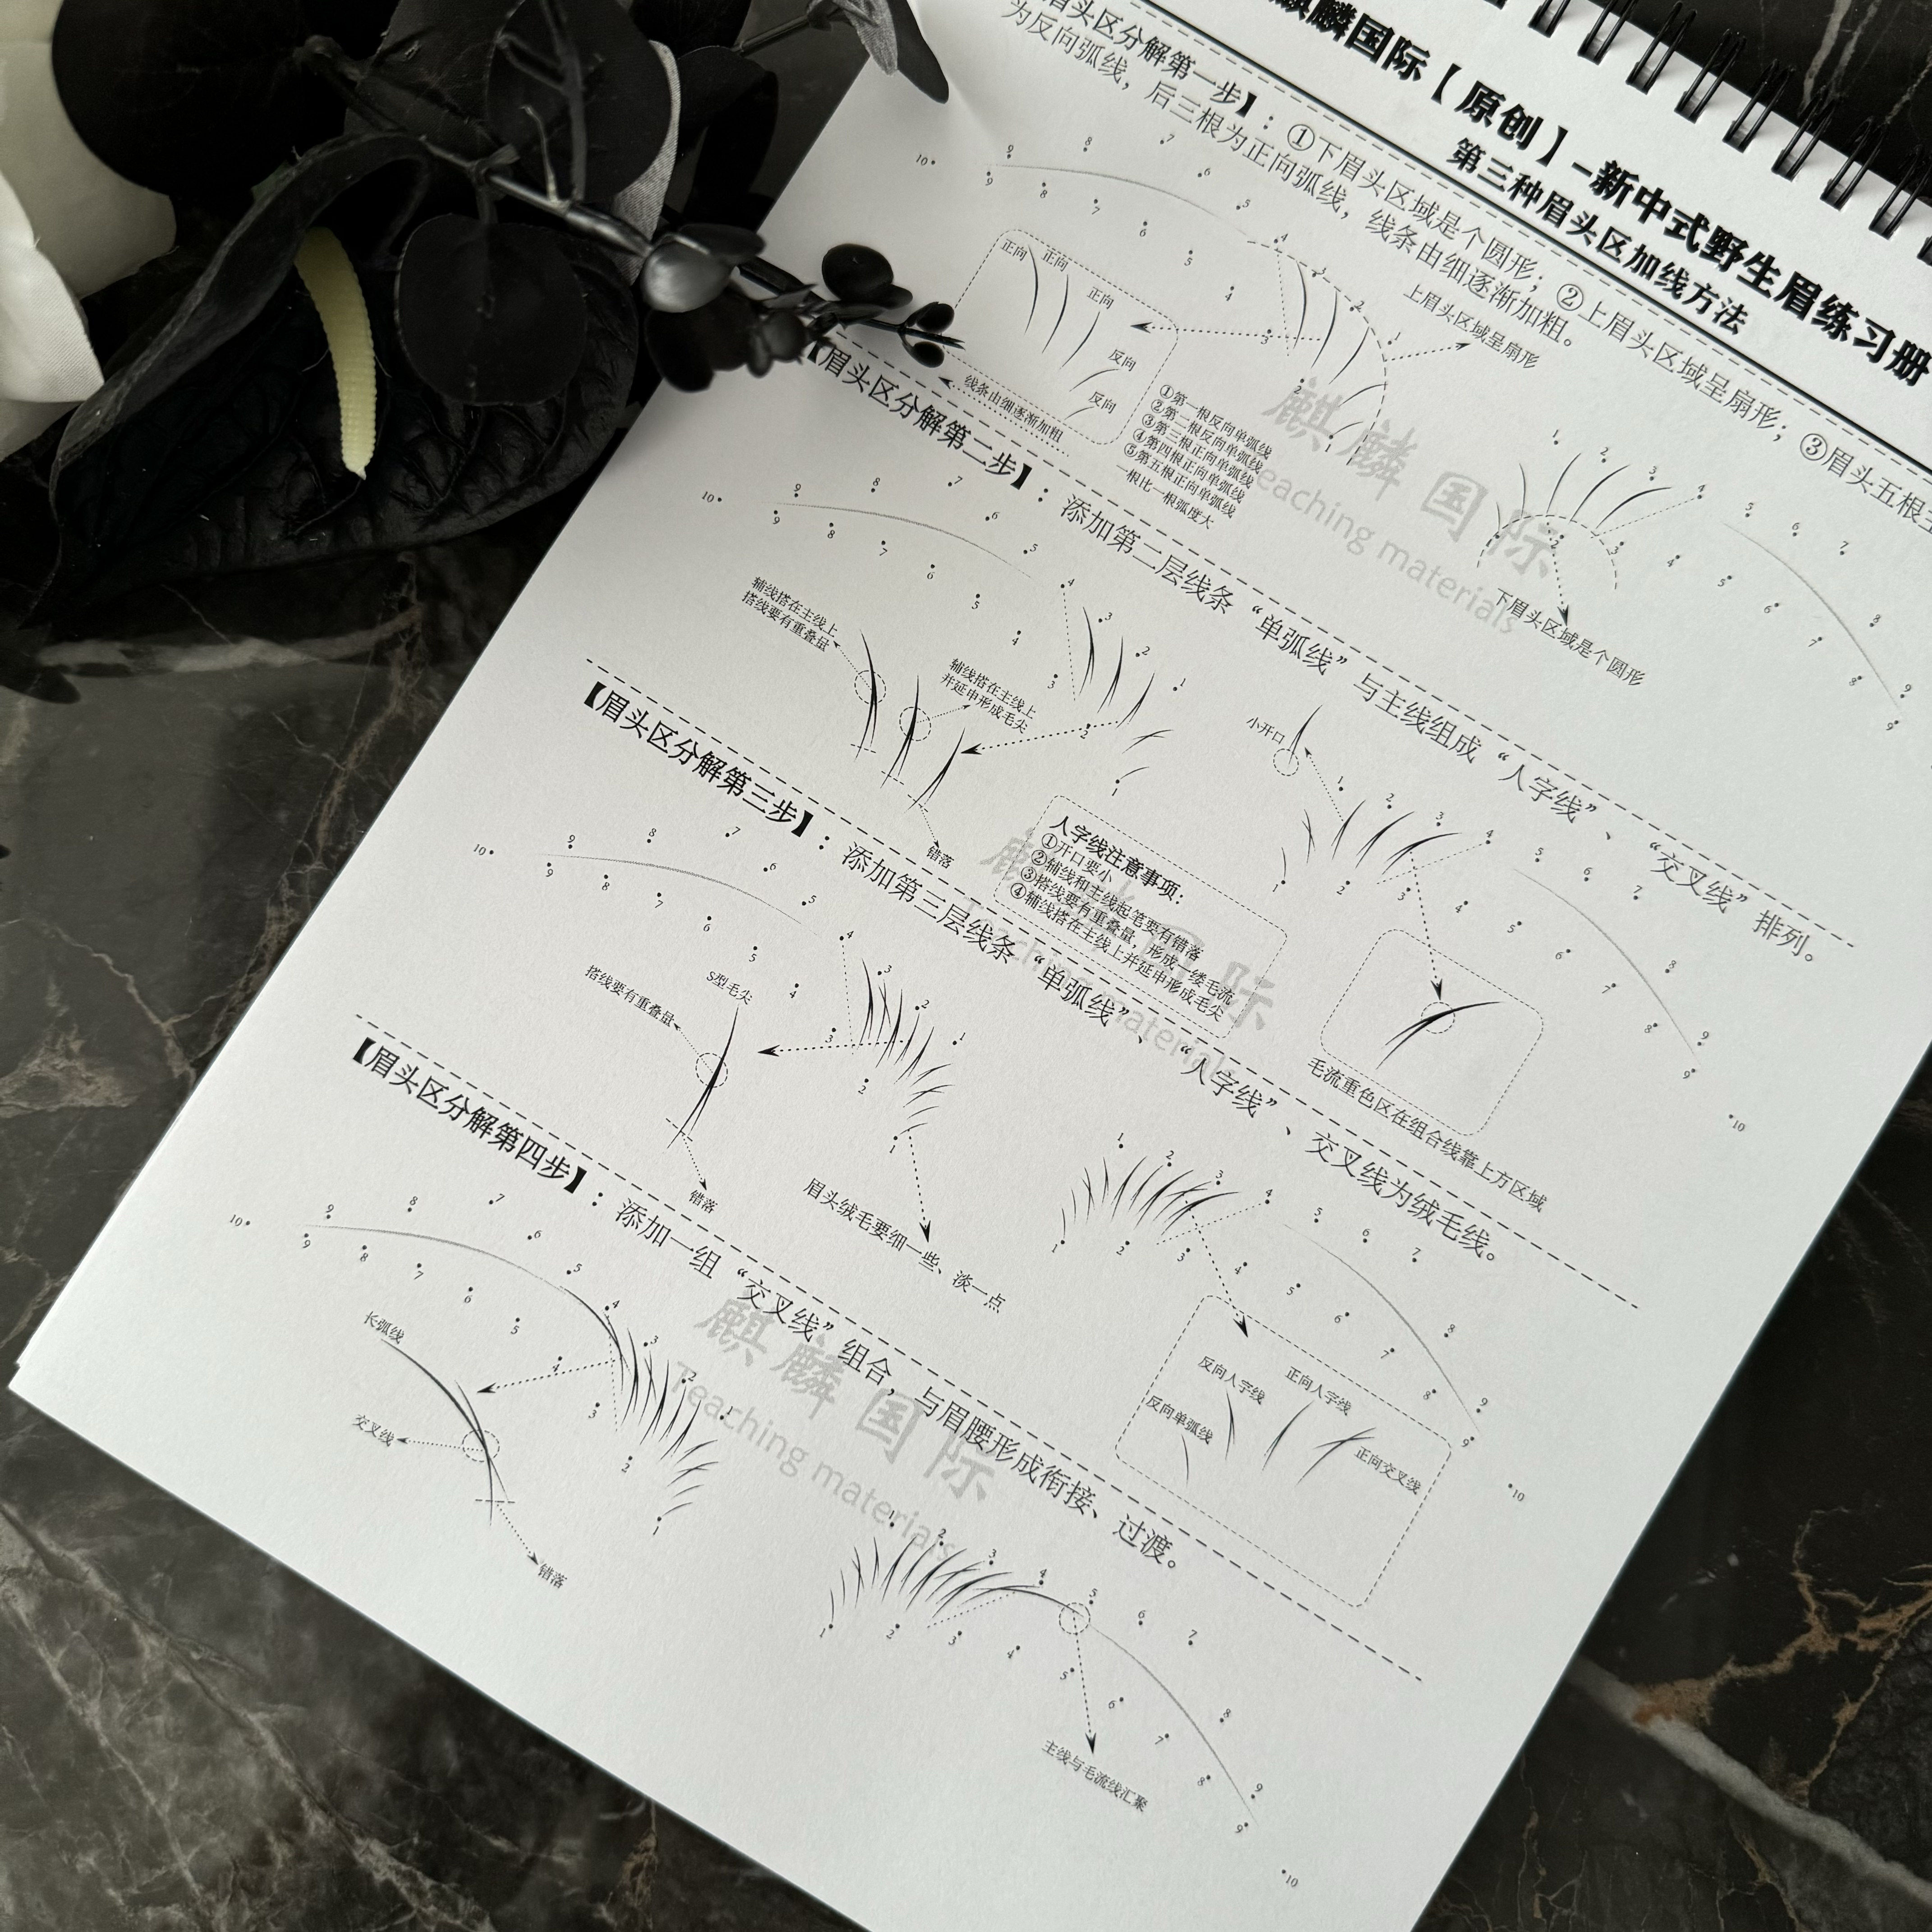 麒麟国际【原创】-新中式野生眉练习册
第三种眉头区加线方法
眉头区分解第一步】：①下眉头区域是个圆形；②上眉头区域呈扇形；③眉头五根主
为反向弧线，后三根为正向弧线，线条由细逐渐加粗。
正向
正向
正向
反向
反向
线条由细逐渐加粗
上眉头区域呈扇形
①第一根反向单弧线
②第二根反向单弧线
③第三根正向单弧线
④第四根正向单弧线
⑤第五根正向单弧线
一根比一根弧度大
下眉头区域是个圆形
麒麟国际
Teaching materials
【眉头区分解第二步】：添加第二层线条“单弧线”与主线组成“人字线”、“交叉线”排列。
辅线搭在主线上，
搭线要有重叠量
辅线搭在主线上
并延申形成毛尖
错落
小开口
人字线注意事项：
①开口要小
②辅线和主线起笔要有错落
③搭线要有重叠量，形成一缕毛流
④辅线搭在主线上并延申形成毛尖
毛流重色区在组合线靠上方区域
【眉头区分解第三步】：添加第三层线条“单弧线”、“人字线”、交叉线为绒毛线。
搭线要有重叠量
S型毛尖
错落
眉头绒毛要细一些、淡一点
反向单弧线
反向人字线
正向人字线
正向交叉线
【眉头区分解第四步】：添加一组“交叉线”组合，与眉腰形成衔接、过渡。
长弧线
交叉线
错落
主线与毛流线汇聚
麒麟国际
Teaching materials